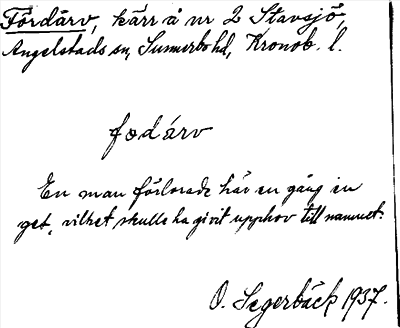 Fördärv, kärr å nr 2 Stavsjö,
Angelstads sn, Sunnerbo hd, Kronob. l.
fodärv
En man förlorade här en gång en
get, vilket skulle ha givit upphov till namnet.
O. Segerbäck 1937.